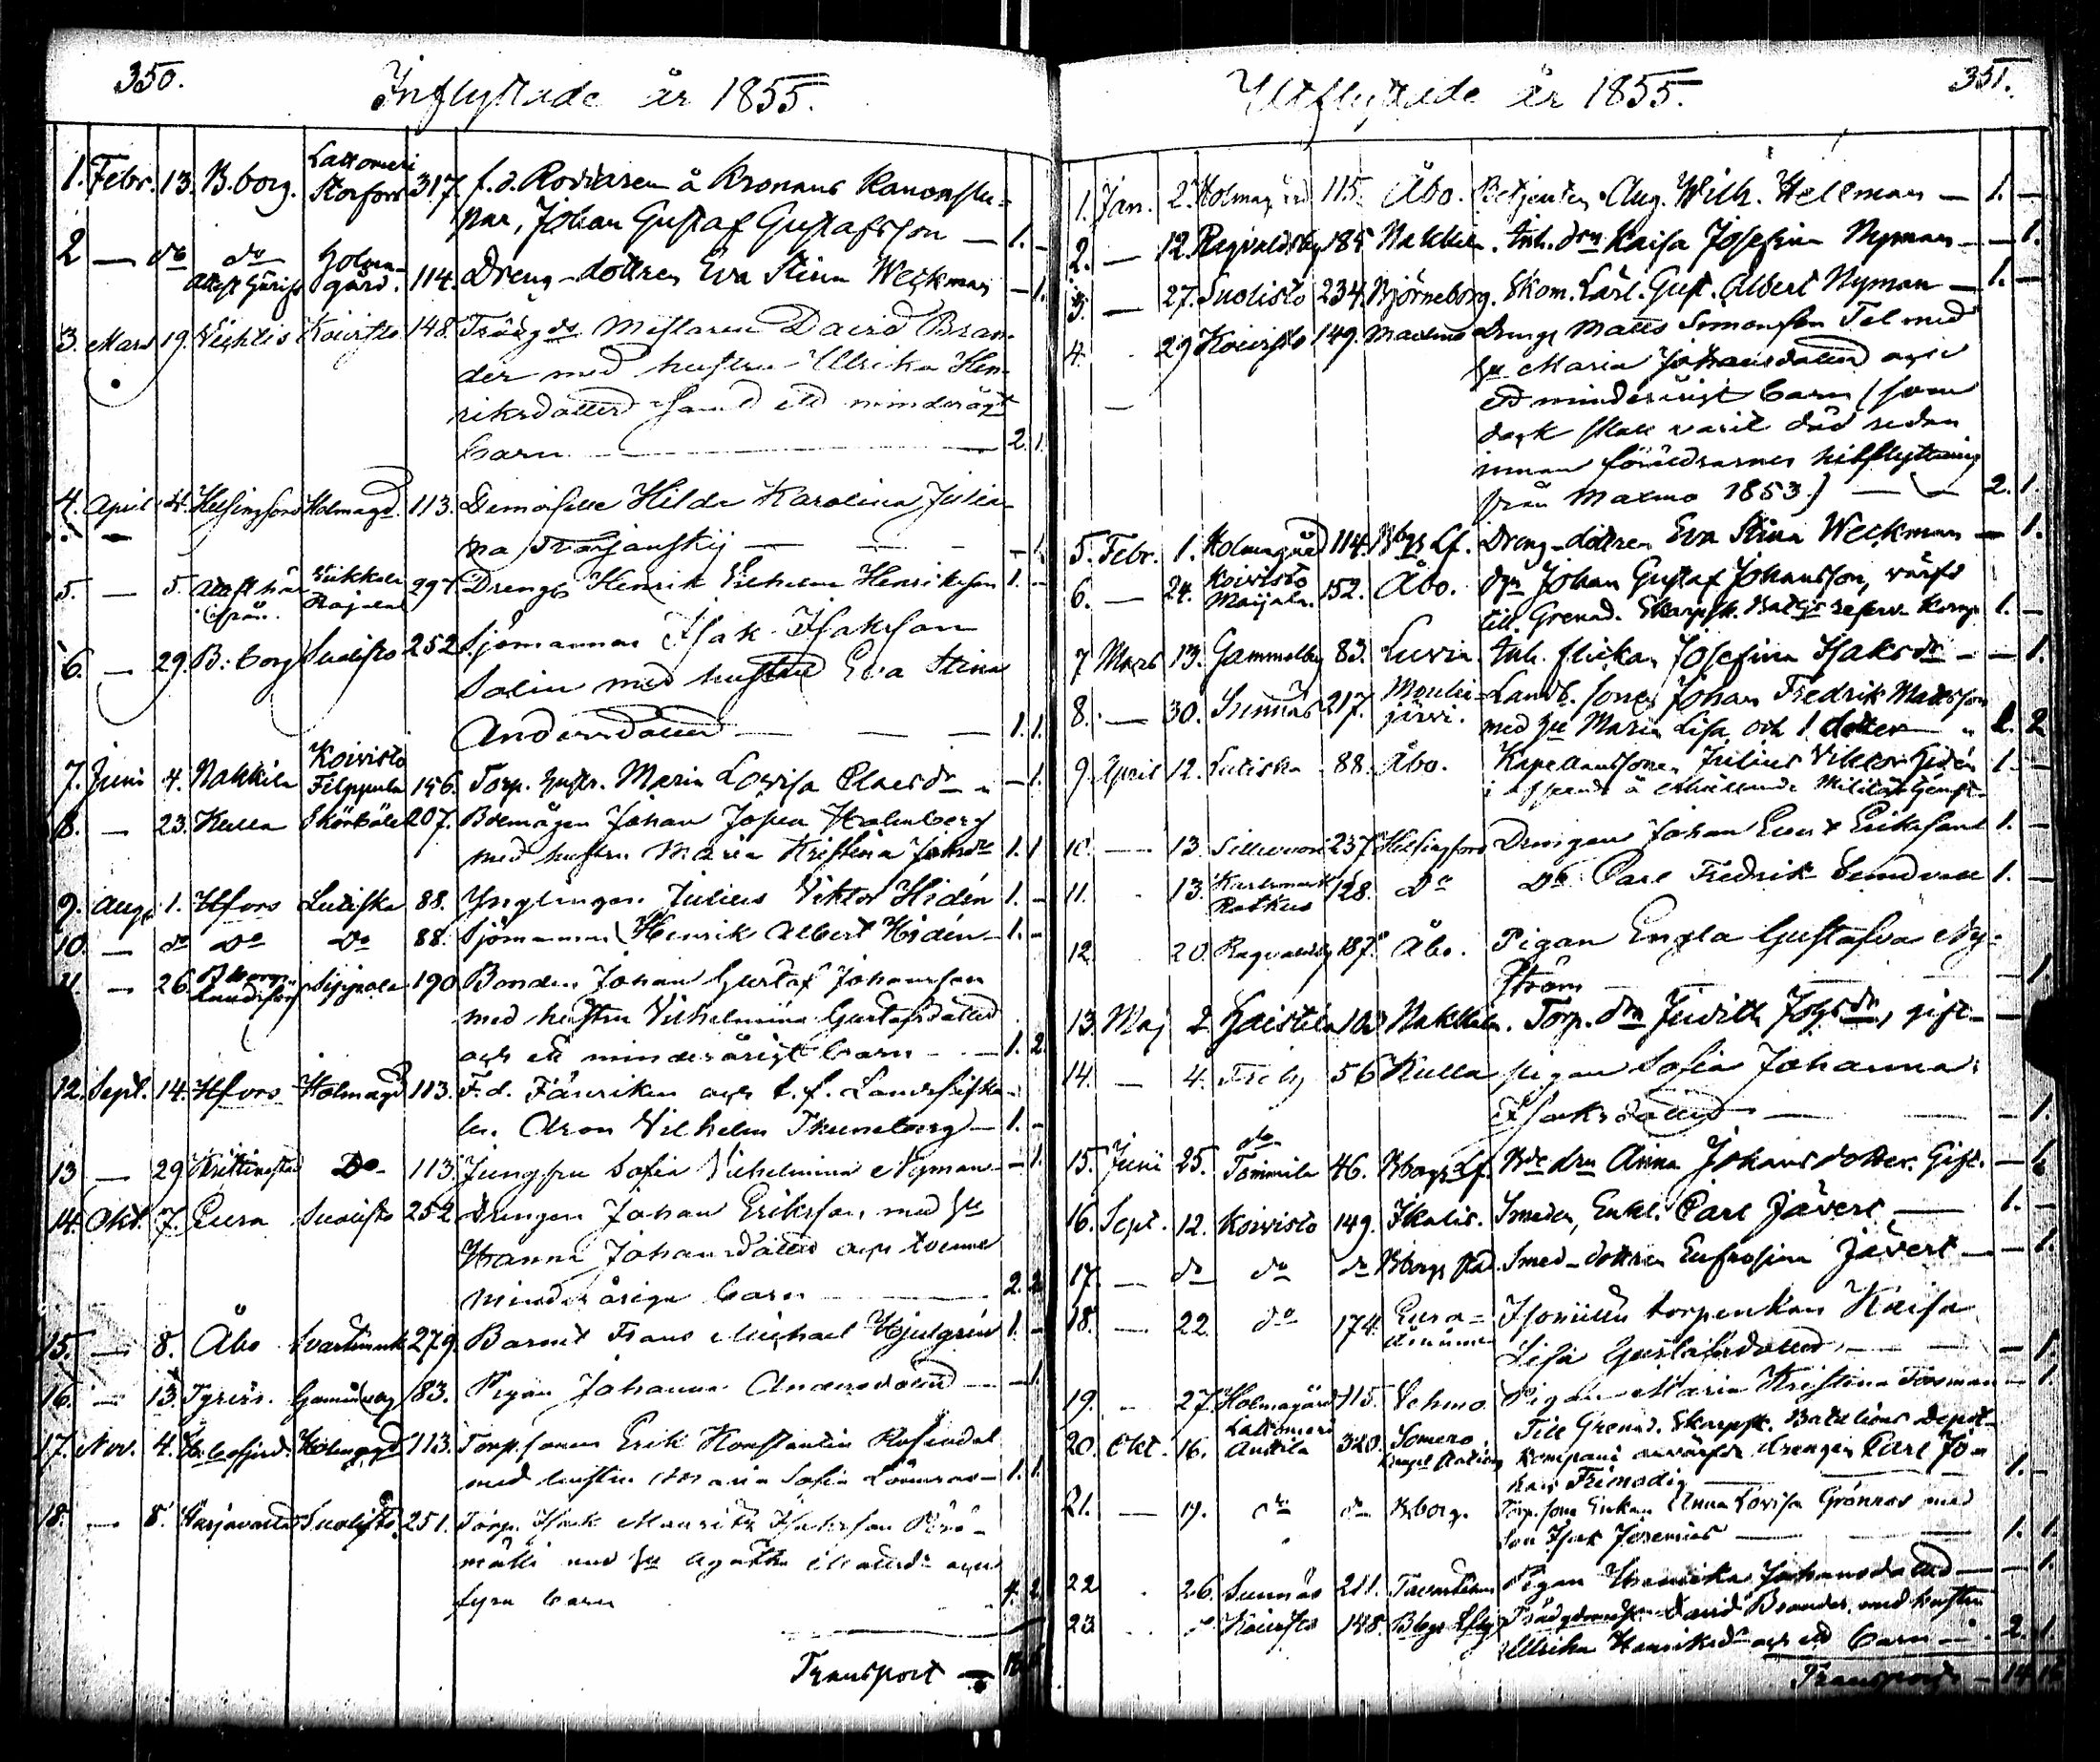 350.
Inflyttade år 1855.
1. Febr. 13. B.borg. Lattomeri Storfors 317. f.d. Roddaren å Kronans Kanonslu-
par, Johan Gustaf Gustafsson — 1. -
2 — do do Holma-
gård. 114. Dreng-dottren Eva Stina Weckman — 1.
3. Mars 19. Vichtis Koivisto 148. Trädgds Mästaren David Bran-
der med hustru Ulrika Hen-
riksdotter samt ett minderågt
barn — 2. 1.
4. April 4. Helsingfors Holmagd. 113. Demoiselle Hilda Karolina Julia-
na — 1.
5. — 5. Attest här
ifrån. 297 Drengen Henrik Vilhelm Henriksson 1. -
6. — 29. B:borg Suolisto 252 Sjömannen Isak Isaksson
Salin med hustru Eva Stina
Andersdotter — 1. 1.
7. Juni 4. Nakkila Koivisto
Filppula 156. Torp. hustr. Maria Lovisa Claesdr — 1.
8. — 23. Kulla 207. Bdemågen Johan Holmberg
med hustru Maria Kristina Johsdr 1. 1
9. Augs 1. Hfors Lutiska 88. Ynglingen Julius Viktor Hidén 1. -
10. — do Do Do 88. Sjömannen Henrik Albert Hidén — 1. -
11. — 26. B.borgs
Landsförs. Sippola 190 Bonden Johan Gustaf Johansson
med hustru Vilhelmina Gustafsdotter
och ett minderårigt barn — 1. 2.
12. Sept. 14. Hfors Holmagd 113. F.d. Fänriken och t.f. Landsfiska-
len Aron Vilhelm — 1. -
13 — 29 Kristinestad Do 113. Jungfru Sofia Vilhelmina Nyman — 1.
14. Okt. 7. Eura Suolisto 252 Drengen Johan Eriksson med hu
Hanna Johansdotter och tvenne
minderåriga barn — 2. 2
15. — 8. Åbo Svartsmark 279. Barnet Frans Michael Hjulgrén 1. -
16. — 13. Tyrvis. Gammelby 83. Pigan Johanna Andersdotter — 1.
17. Nov. 4. Holmagd 113. Torp.sonen Erik Konstantin Rosendal
med hustru Maria Sofia — 1. 1.
18. — 8. Harjavalta Suolisto 251. Torp. Isak Mauritz Isaksson
med hu Agatha och
fyra barn 4. 2
Transport —
351.
Utflyttade år 1855.
1. Jan. 2. Holmagård 115. Åbo. Betjenten Aug. Wilh. Hellman — 1. —
2. — 12. Ragvaldsby 185 Nakkila. Inh. drn Kaisa Josefina Nyman — 1.
3. — 27. Suolisto 234. Björneborg. Skom. Lärl. Gust. Albert Nyman — 1. —
4. 29 Koivisto 149. Maxmo Drengen Matts Simonsson Fel med
hu Maria Johansdotter och
ett minderårigt barn (som
dock skall varit död redan
innan föräldrarnes hitflyttning
från Maxmo 1853.) — 2. 1.
5. Febr. 1. Holmagård 114. Bbgs Lf. Dreng-dottren Eva Stina Weckman — 1.
6. — 24. Koivisto
Maijala. 152. Åbo. Dgn Johan Gustaf Johansson, värfd
till Grenad. Skarpsk. Batljs reserv Komp. 1. —
7 Mars 13. Gammelby 83. Luvia. Inh. flickan Josefina Isaksdr — 1.
8. — 30. Sunnas 217. Mouhi-
järvi. Landb. sonen Johan Fredrik Mattsson
med hu Maria Lisa och 1 dotter 1. 2
9. April 12. Lutiska 88. Åbo. Kapellanssonen Julius Viktor Hidén 1. —
10. — 13. 237. Helsingfors Drengen Johan Evert Eriksson 1. —
11. 13. Karlsmark
Ratkus 128. Do Do Carl Fredrik Sundvall 1. —
12. 20. Ragvaldsby 187. Åbo. Pigan Engla Gustafva Ny-
ström — 1.
13. Maj 2. Haistila 103 Nakkila. Torp. drn Judith Johsdr, gift —
14. — 4. Friby 56 Kulla pigan Sofia Johanna
Isaksdotter — 1.
15. Juni 25. do
Tommila 46. Bborgs Lf. Bde drn Anna Johansdotter. Gift. — 1.
16. Sept. 12. Koivisto 149. Ikalis. Smeden, Enkl. Carl Jävert — 1. —
17. — do do do Bborgs stad. Smed-dottren Eufrosina Jävert — 1.
18. — 22. do 174. Eura-
åminne torpenkan Kaisa
Lisa Gustafsdotter — 1.
19. 27. Holmagård 115. Vehmo Pigan Maria Kristina Forsman — 1.
20. Okt. 16. Lattomeri
Anttila 320. Somero. Till Grenad. Skarpsk. Bataljons Depot-
Kompani anvärfde drengen Carl Jo-
han Frimodig — 1. -
21. — 19. do do Bborg. Enkan Anna Lovisa Grönroos med
son Isak Jeremias — 1. 1.
22. 26. Sunnäs 211. Pigan Henrika Johansdotter — 1.
23. Koivisto 148. Bbgs Lfs David Brander, med hustru
Ulrika Henriksdr och ett barn — 2. 1.
Transport — 14